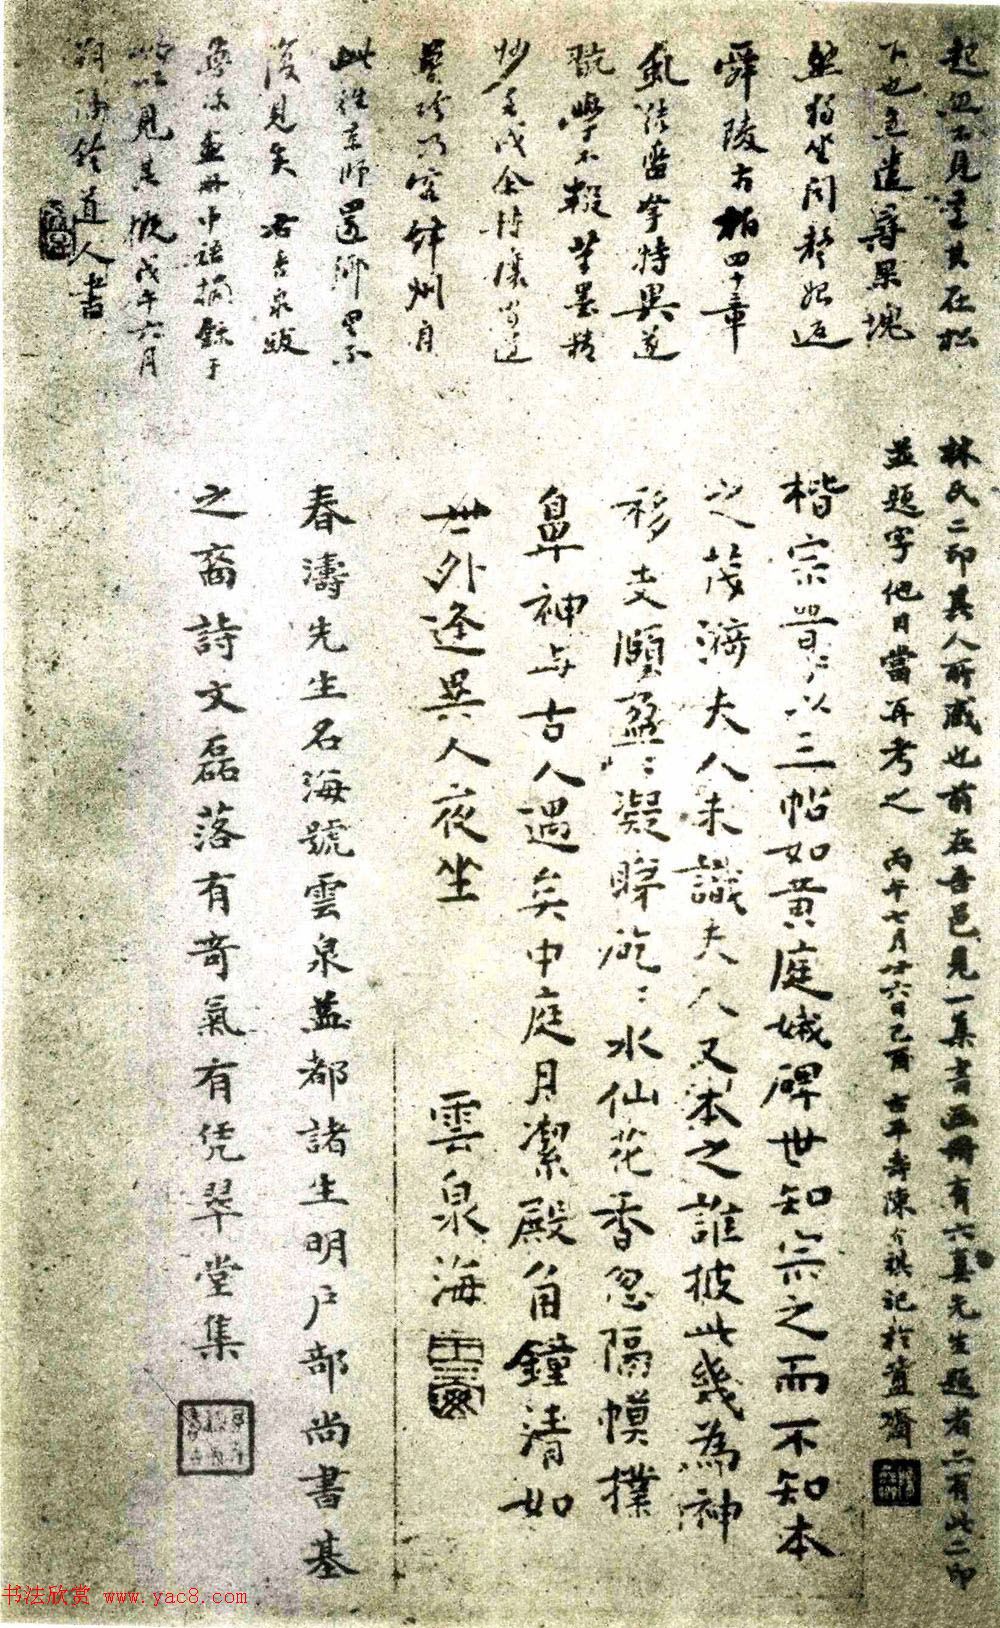 起忽不見意其在松
下也急遣尋果塊
然獨坐問答如返
舜陵古柏四十章
虬結雷拏特異遂
甓學不輟筆墨精
妙壬戌余持廣文送
此往京師還鄉不
復見矣右古泉跋
畫冊中語摘錄于
以見其概戊午六月
道人書
林氏二印其人所藏也前在吾邑見一集書画冊有六真先生題者亦有此二印
並題字他日當再考之 丙午七月廿六日己酉 古平壽陳介祺記於簠齋
楷宗晋以三帖如黄庭娥碑世知宗之而不知本
之茂漪夫人未識夫人又本之誰披此幾為神
移支頤盈〻凝睇矻〻水仙花香忽隔幙撲
鼻神与古人遇矣中庭月潔殿角鐘清如
世外逢異人夜坐 雲泉海
春濤先生名海號雲泉益都諸生明戶部尚書基
之裔詩文磊落有奇氣有凭翠堂集
书法欣赏 www.yac8.com